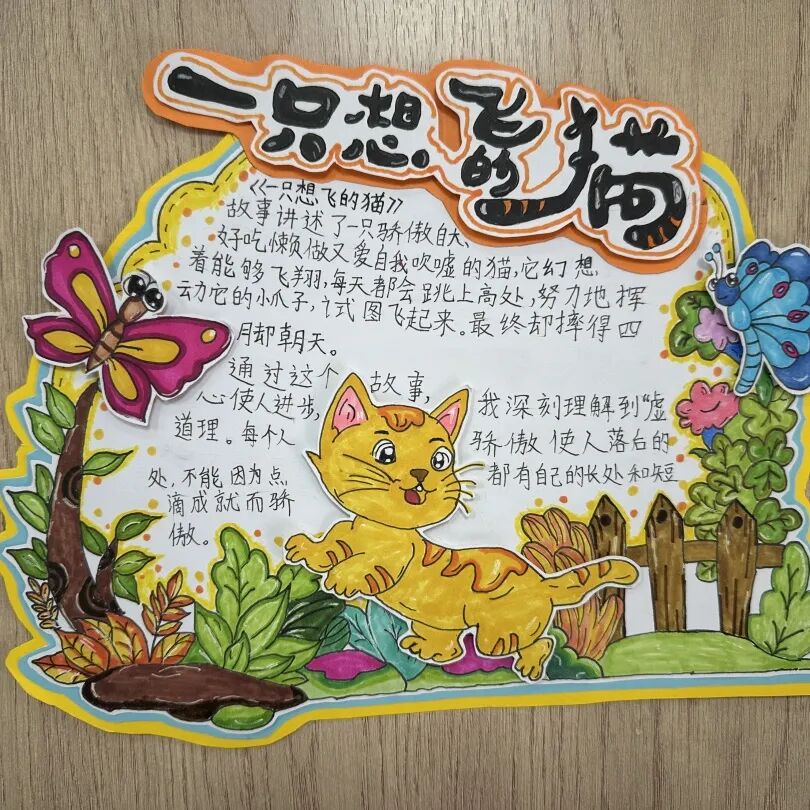 一只想飞的猫
《一只想飞的猫》
故事讲述了一只骄傲自大、
好吃懒做又爱自我吹嘘的猫,它幻想
着能够飞翔,每天都会跳上高处,努力地挥
动它的小爪子,试图飞起来。最终却摔得四
月却朝天。
通过这个故事,我深刻理解到“虚
心使人进步,骄傲使人落后的
道理。每个人都有自己的长处和短
处,不能因为点
滴成就而骄
傲。